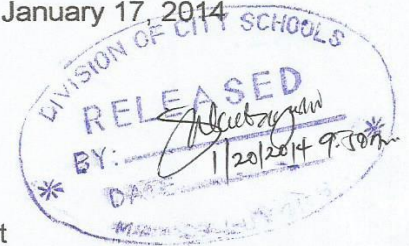 January 17, 2014
DIVISION OF CITY SCHOOLS
RELEASED
BY:
1/20/2014 9:50am
DATE
t